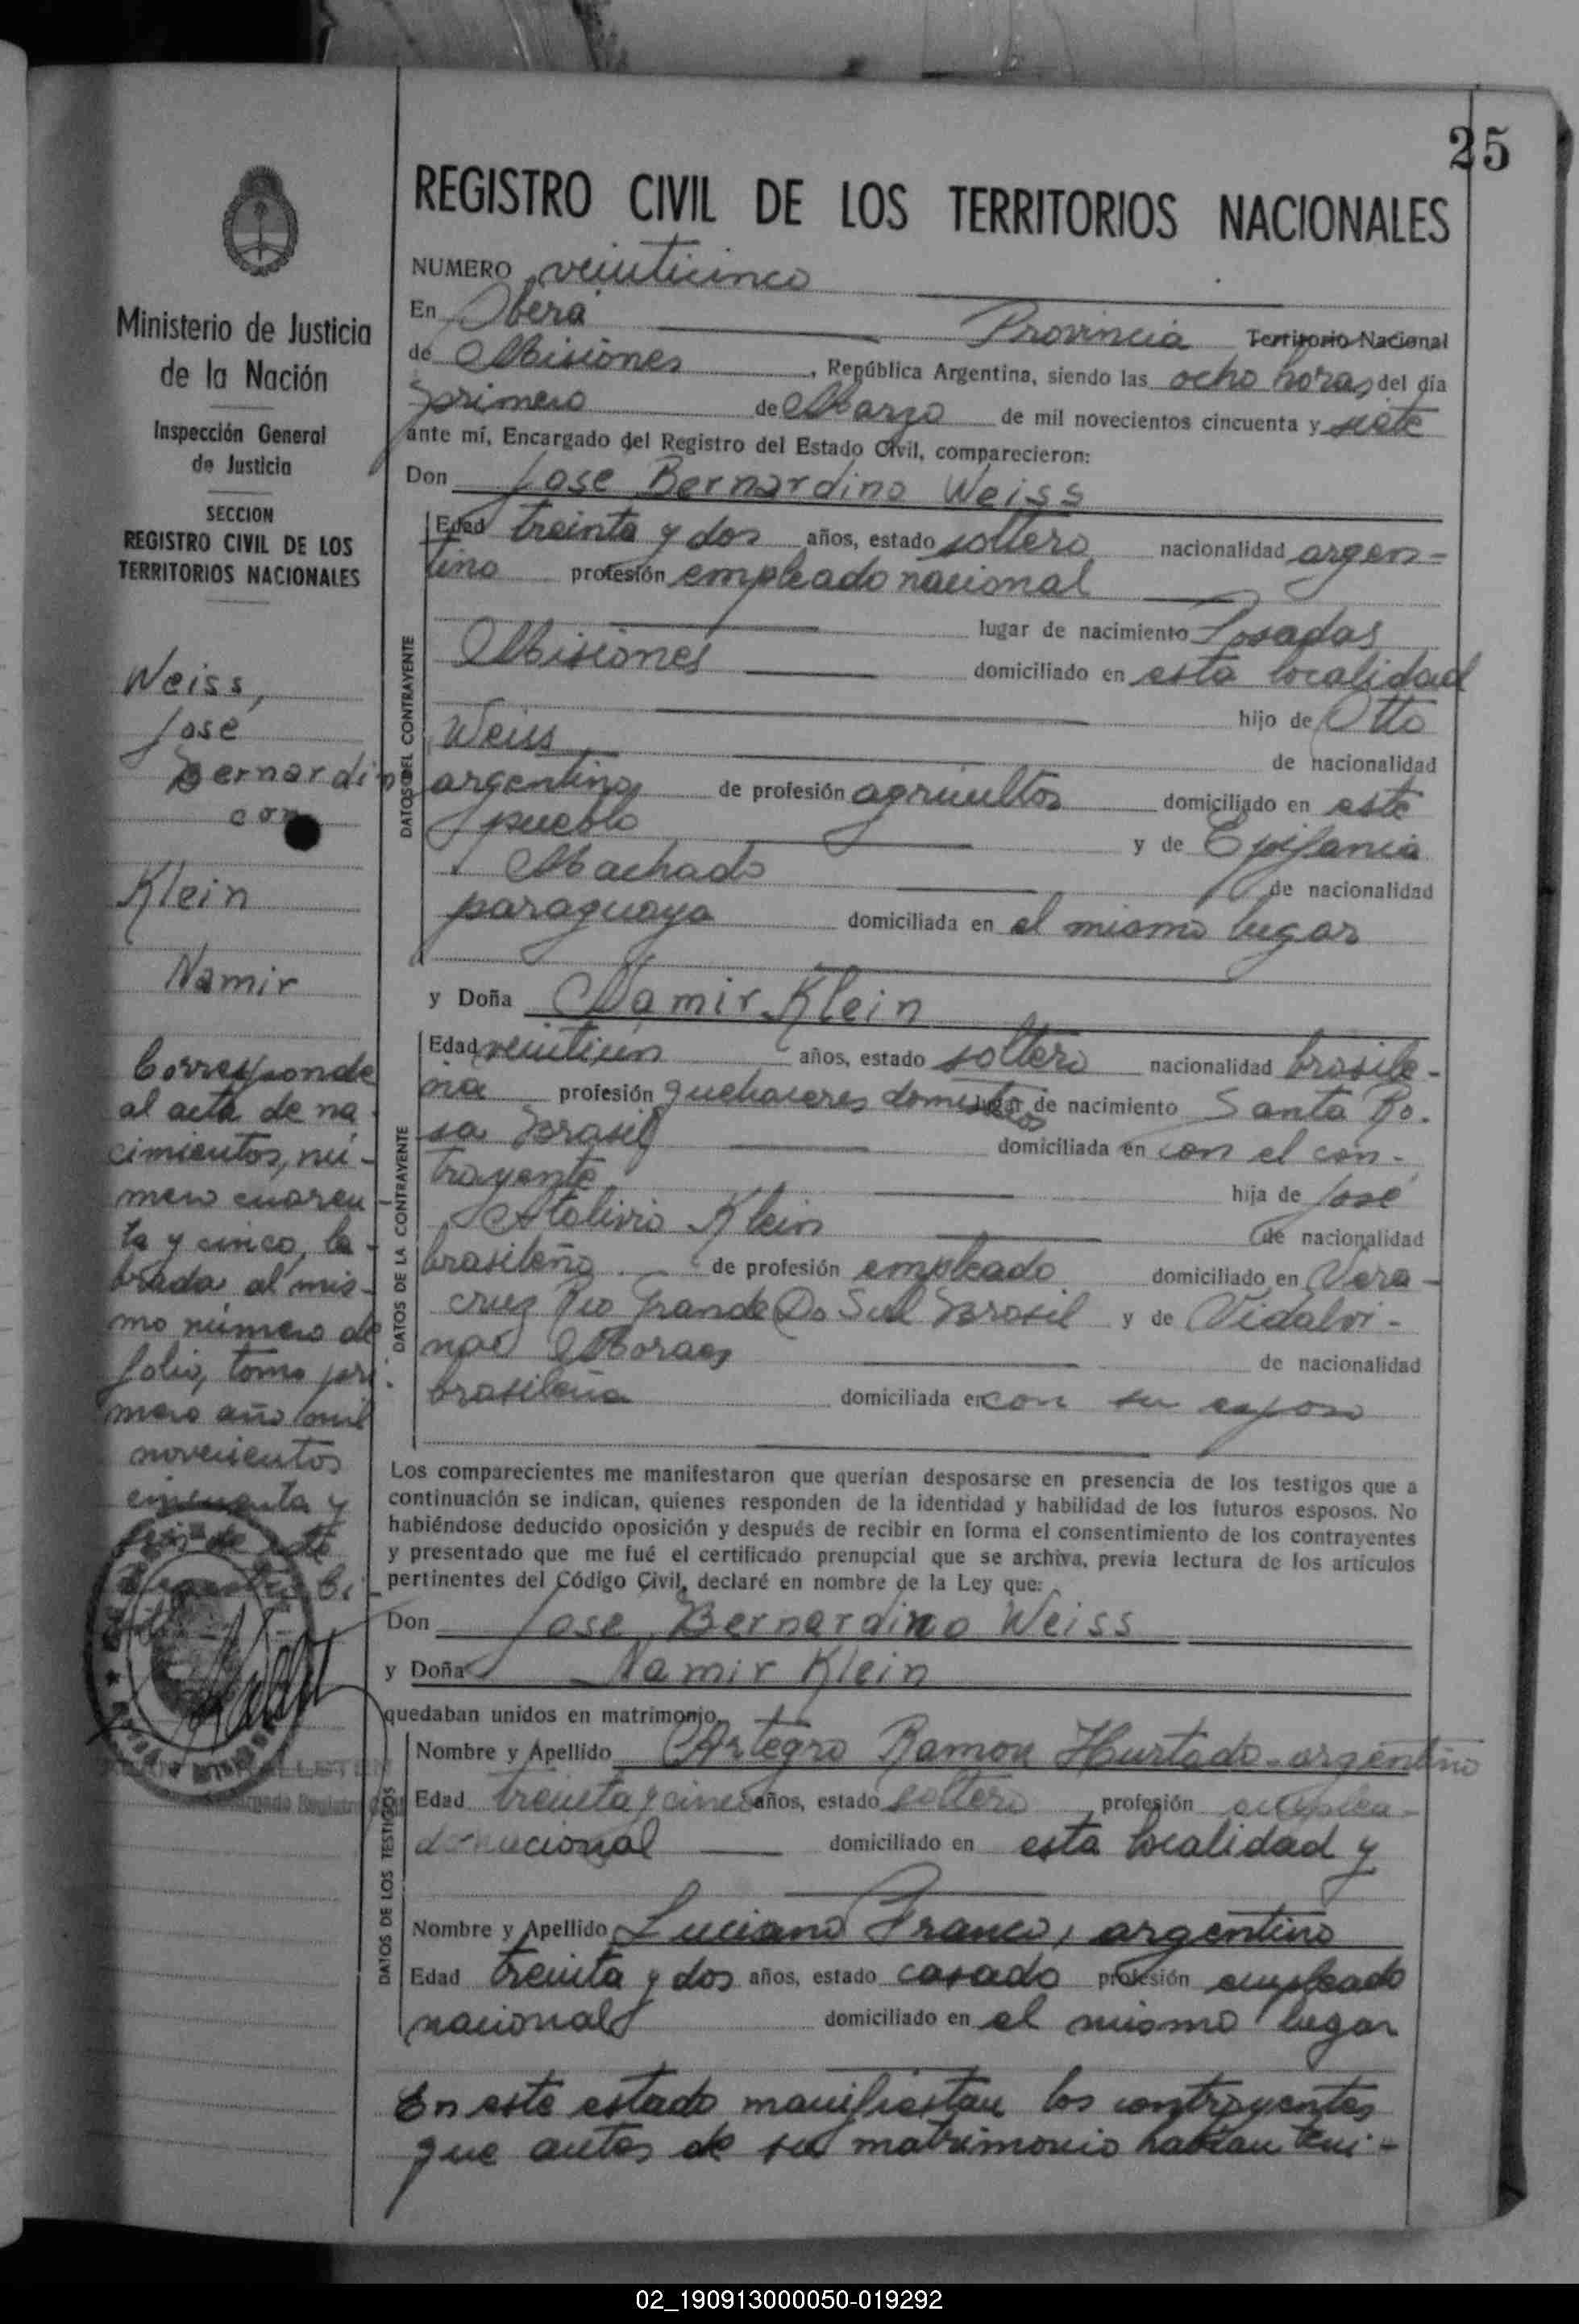 25
REGISTRO CIVIL DE LOS TERRITORIOS NACIONALES
Ministerio de Justicia
de la Nación
Inspección General
de Justicia
SECCION
REGISTRO CIVIL DE LOS
TERRITORIOS NACIONALES
Weiss,
José
Bernardino
con
Klein
Namir
Corresponde
al acta de na
cimientos, nú-
mero cuaren-
ta y cinco, la-
brada al mis-
mo número de
folio, tomo pri-
mero año mil
novecientos
cincuenta y
seis de este
Registro Ci-
NUMERO veinticinco
En Oberá Provincia Territorio Nacional
de Misiones, República Argentina, siendo las ocho horas del día
primero de Marzo de mil novecientos cincuenta y siete
ante mí, Encargado del Registro del Estado Civil, comparecieron:
Don Jose Bernardino Weiss
DATOS DEL CONTRAYENTE
Edad treinta y dos años, estado soltero nacionalidad argen=
tino profesión empleado nacional
lugar de nacimiento Posadas
Misiones domiciliado en esta localidad
hijo de Otto
Weiss de nacionalidad
argentino de profesión agricultor domiciliado en este
pueblo y de Epifania
Machado de nacionalidad
paraguaya domiciliada en el mismo lugar
y Doña Namir Klein
DATOS DE LA CONTRAYENTE
Edad veintiun años, estado soltera nacionalidad brasile-
ña profesión quehaceres domesticos lugar de nacimiento Santa Ro.
sa Brasil domiciliada en con el con-
trayente hija de José
Atalivio Klein de nacionalidad
brasileño de profesión empleado domiciliado en Vera-
cruz Rio Grande Do Sul Brasil y de Vidalvi-
na Moraes de nacionalidad
brasileña domiciliada en con su esposo
Los comparecientes me manifestaron que querían desposarse en presencia de los testigos que a
continuación se indican, quienes responden de la identidad y habilidad de los futuros esposos. No
habiéndose deducido oposición y después de recibir en forma el consentimiento de los contrayentes
y presentado que me fué el certificado prenupcial que se archiva, previa lectura de los artículos
pertinentes del Código Civil, declaré en nombre de la Ley que:
Don Jose Bernardino Weiss
y Doña Namir Klein
quedaban unidos en matrimonio.
DATOS DE LOS TESTIGOS
Nombre y Apellido Ramon Hurtado - argentino
Edad treinta y cinco años, estado soltero profesión emplea-
do nacional domiciliado en esta localidad y
Nombre y Apellido Luciano Franco, argentino
Edad treinta y dos años, estado casado profesión empleado
nacional domiciliado en el mismo lugar
En este estado manifiestan los contrayentes
que antes de su matrimonio habian teni-
02_190913000050-019292